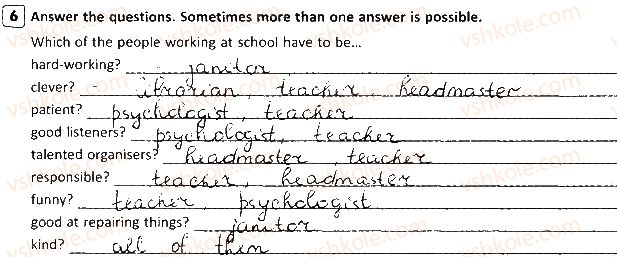 6 Answer the questions. Sometimes more than one answer is possible.
Which of the people working at school have to be...
hard-working? janitor
clever? ibrorian, teacher headmaster
patient? psychologist, teacher
good listeners? psychologist, teacher
talented organisers? headmaster, teacher
responsible? teacher, headmaster
funny? teacher, psychologist
good at repairing things? janitor
kind? all of them